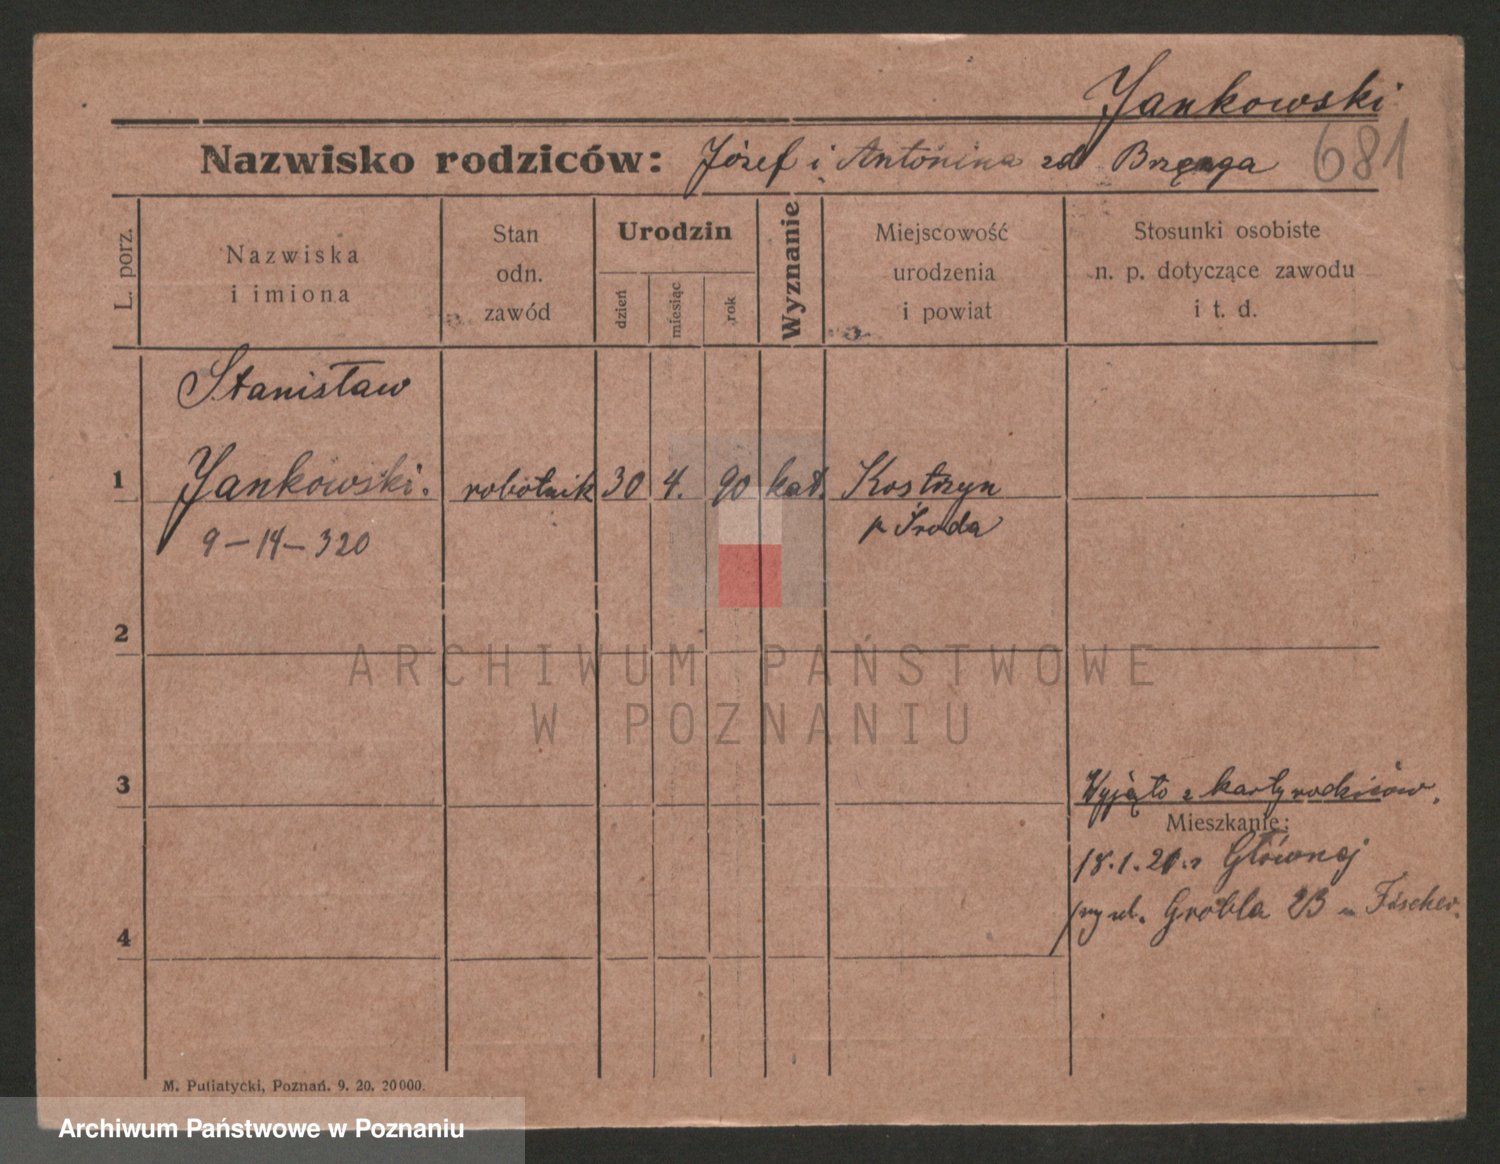 Jankowski
Nazwisko rodziców: Józef i Antonina zd Brzęnga 681
L. porz.
Nazwiska
i imiona
Stan
odn.
zawód
Urodzin
dzień
miesiąc
rok
Wyznanie
Miejscowość
urodzenia
i powiat
Stosunki osobiste
n. p. dotyczące zawodu
i t. d.
Stanisław
1 Jankowski. robotnik 30 4. 90 kat. Kostrzyn
9-14-320 p Środa
2
ARCHIWUM PAŃSTWOWE
W POZNANIU
3 Wyjęto z karty rodziców.
Mieszkanie:
18.1.21. z Głównej
Grobla 23 Fischer.
4
M. Putiatycki, Poznań. 9. 20. 20000.
Archiwum Państwowe w Poznaniu